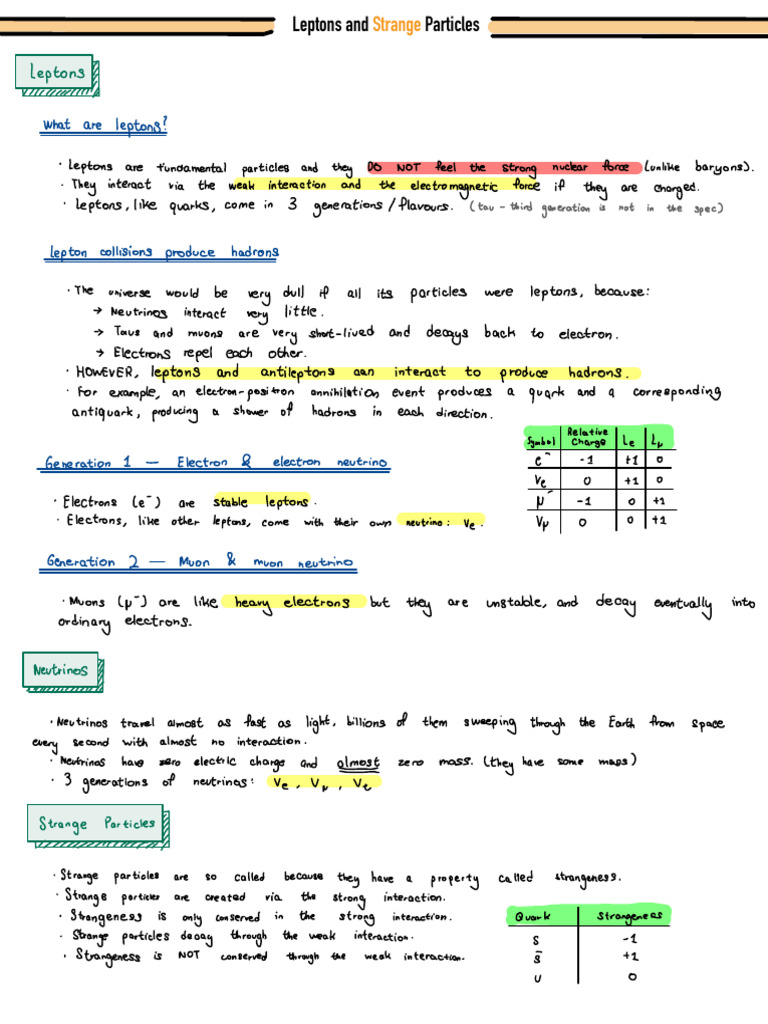 Leptons and Strange Particles
Leptons
What are leptons?
· Leptons are fundamental particles and they DO NOT feel the strong nuclear force (unlike baryons).
· They interact via the weak interaction and the electromagnetic force if they are charged.
· leptons, like quarks, come in 3 generations/flavours. (tau - third generation is not in the spec)
lepton collisions produce hadrons
· The universe would be very dull if all its particles were leptons, because:
→ Neutrinos interact very little.
→ Taus and muons are very short-lived and decays back to electron.
→ Electrons repel each other.
· HOWEVER, leptons and antileptons can interact to produce hadrons.
· For example, an electron-positron annihilation event produces a quark and a corresponding
antiquark, producing a shower of hadrons in each direction.
Symbol Relative Charge Le Lμ
e⁻ -1 +1 0
Ve 0 +1 0
μ⁻ -1 0 +1
Vμ 0 0 +1
Generation 1 — Electron & electron neutrino
· Electrons (e⁻) are stable leptons.
· Electrons, like other leptons, come with their own neutrino: Ve.
Generation 2 — Muon & muon neutrino
· Muons (μ⁻) are like heavy electrons but they are unstable, and decay eventually into
ordinary electrons.
Neutrinos
· Neutrinos travel almost as fast as light, billions of them sweeping through the Earth from space
every second with almost no interaction.
· Neutrinos have zero electric charge and almost zero mass. (they have some mass)
· 3 generations of neutrinos: Ve, Vμ, Vt
Strange Particles
· Strange particles are so called because they have a property called strangeness.
· Strange particles are created via the strong interaction.
· Strangeness is only conserved in the strong interaction.
· Strange particles decay through the weak interaction.
· Strangeness is NOT conserved through the weak interaction.
Quark Strangeness
s -1
s̄ +1
u 0